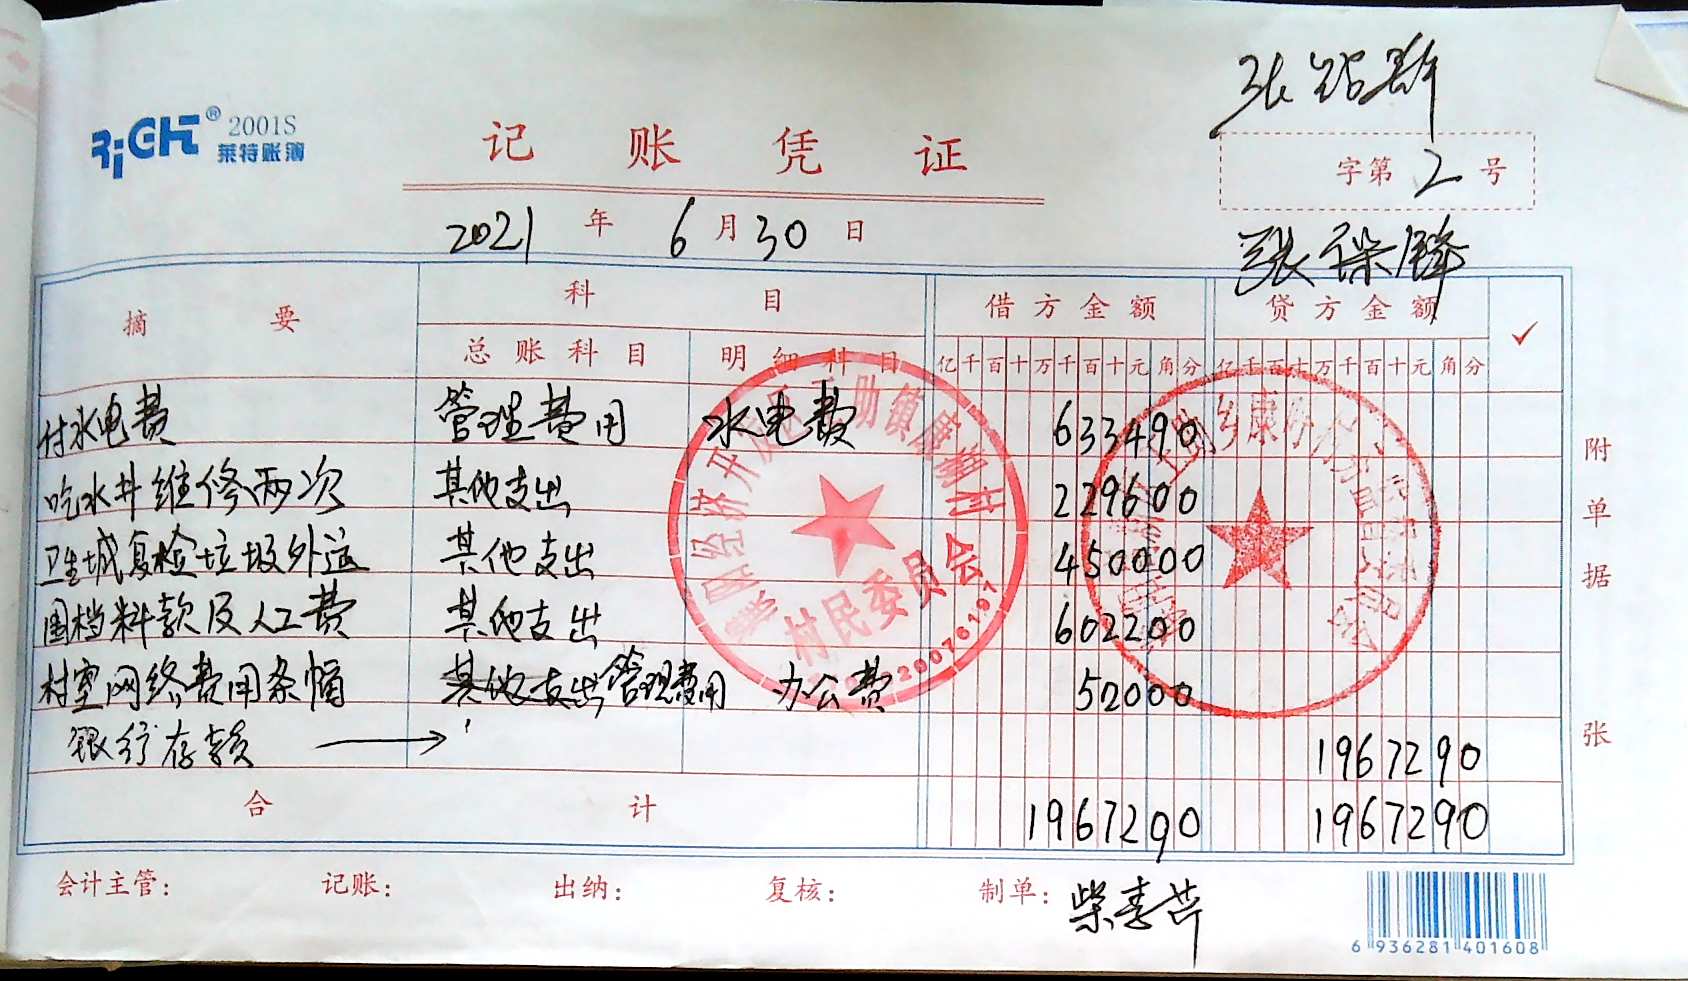 RiGHT® 2001S
莱特账簿
记账凭证
字第2号
2021年6月30日
摘要 科目 借方金额 贷方金额 ✓
总账科目 明细科目 亿千百十万千百十元角分 亿千百十万千百十元角分
付水电费 管理费用 水电费 633490
吃水井维修两次 其他支出 229600
卫生城复检垃圾外运 其他支出 450000
围档料款及人工费 其他支出 602200
村室网络费用条幅 其他支出 管理费用 办公费 52000
银行存款 → 1967290
合计 1967290 1967290
附单据 张
村民委员会
会计主管: 记账: 出纳: 复核: 制单: 柴春芹
6 936281 401608